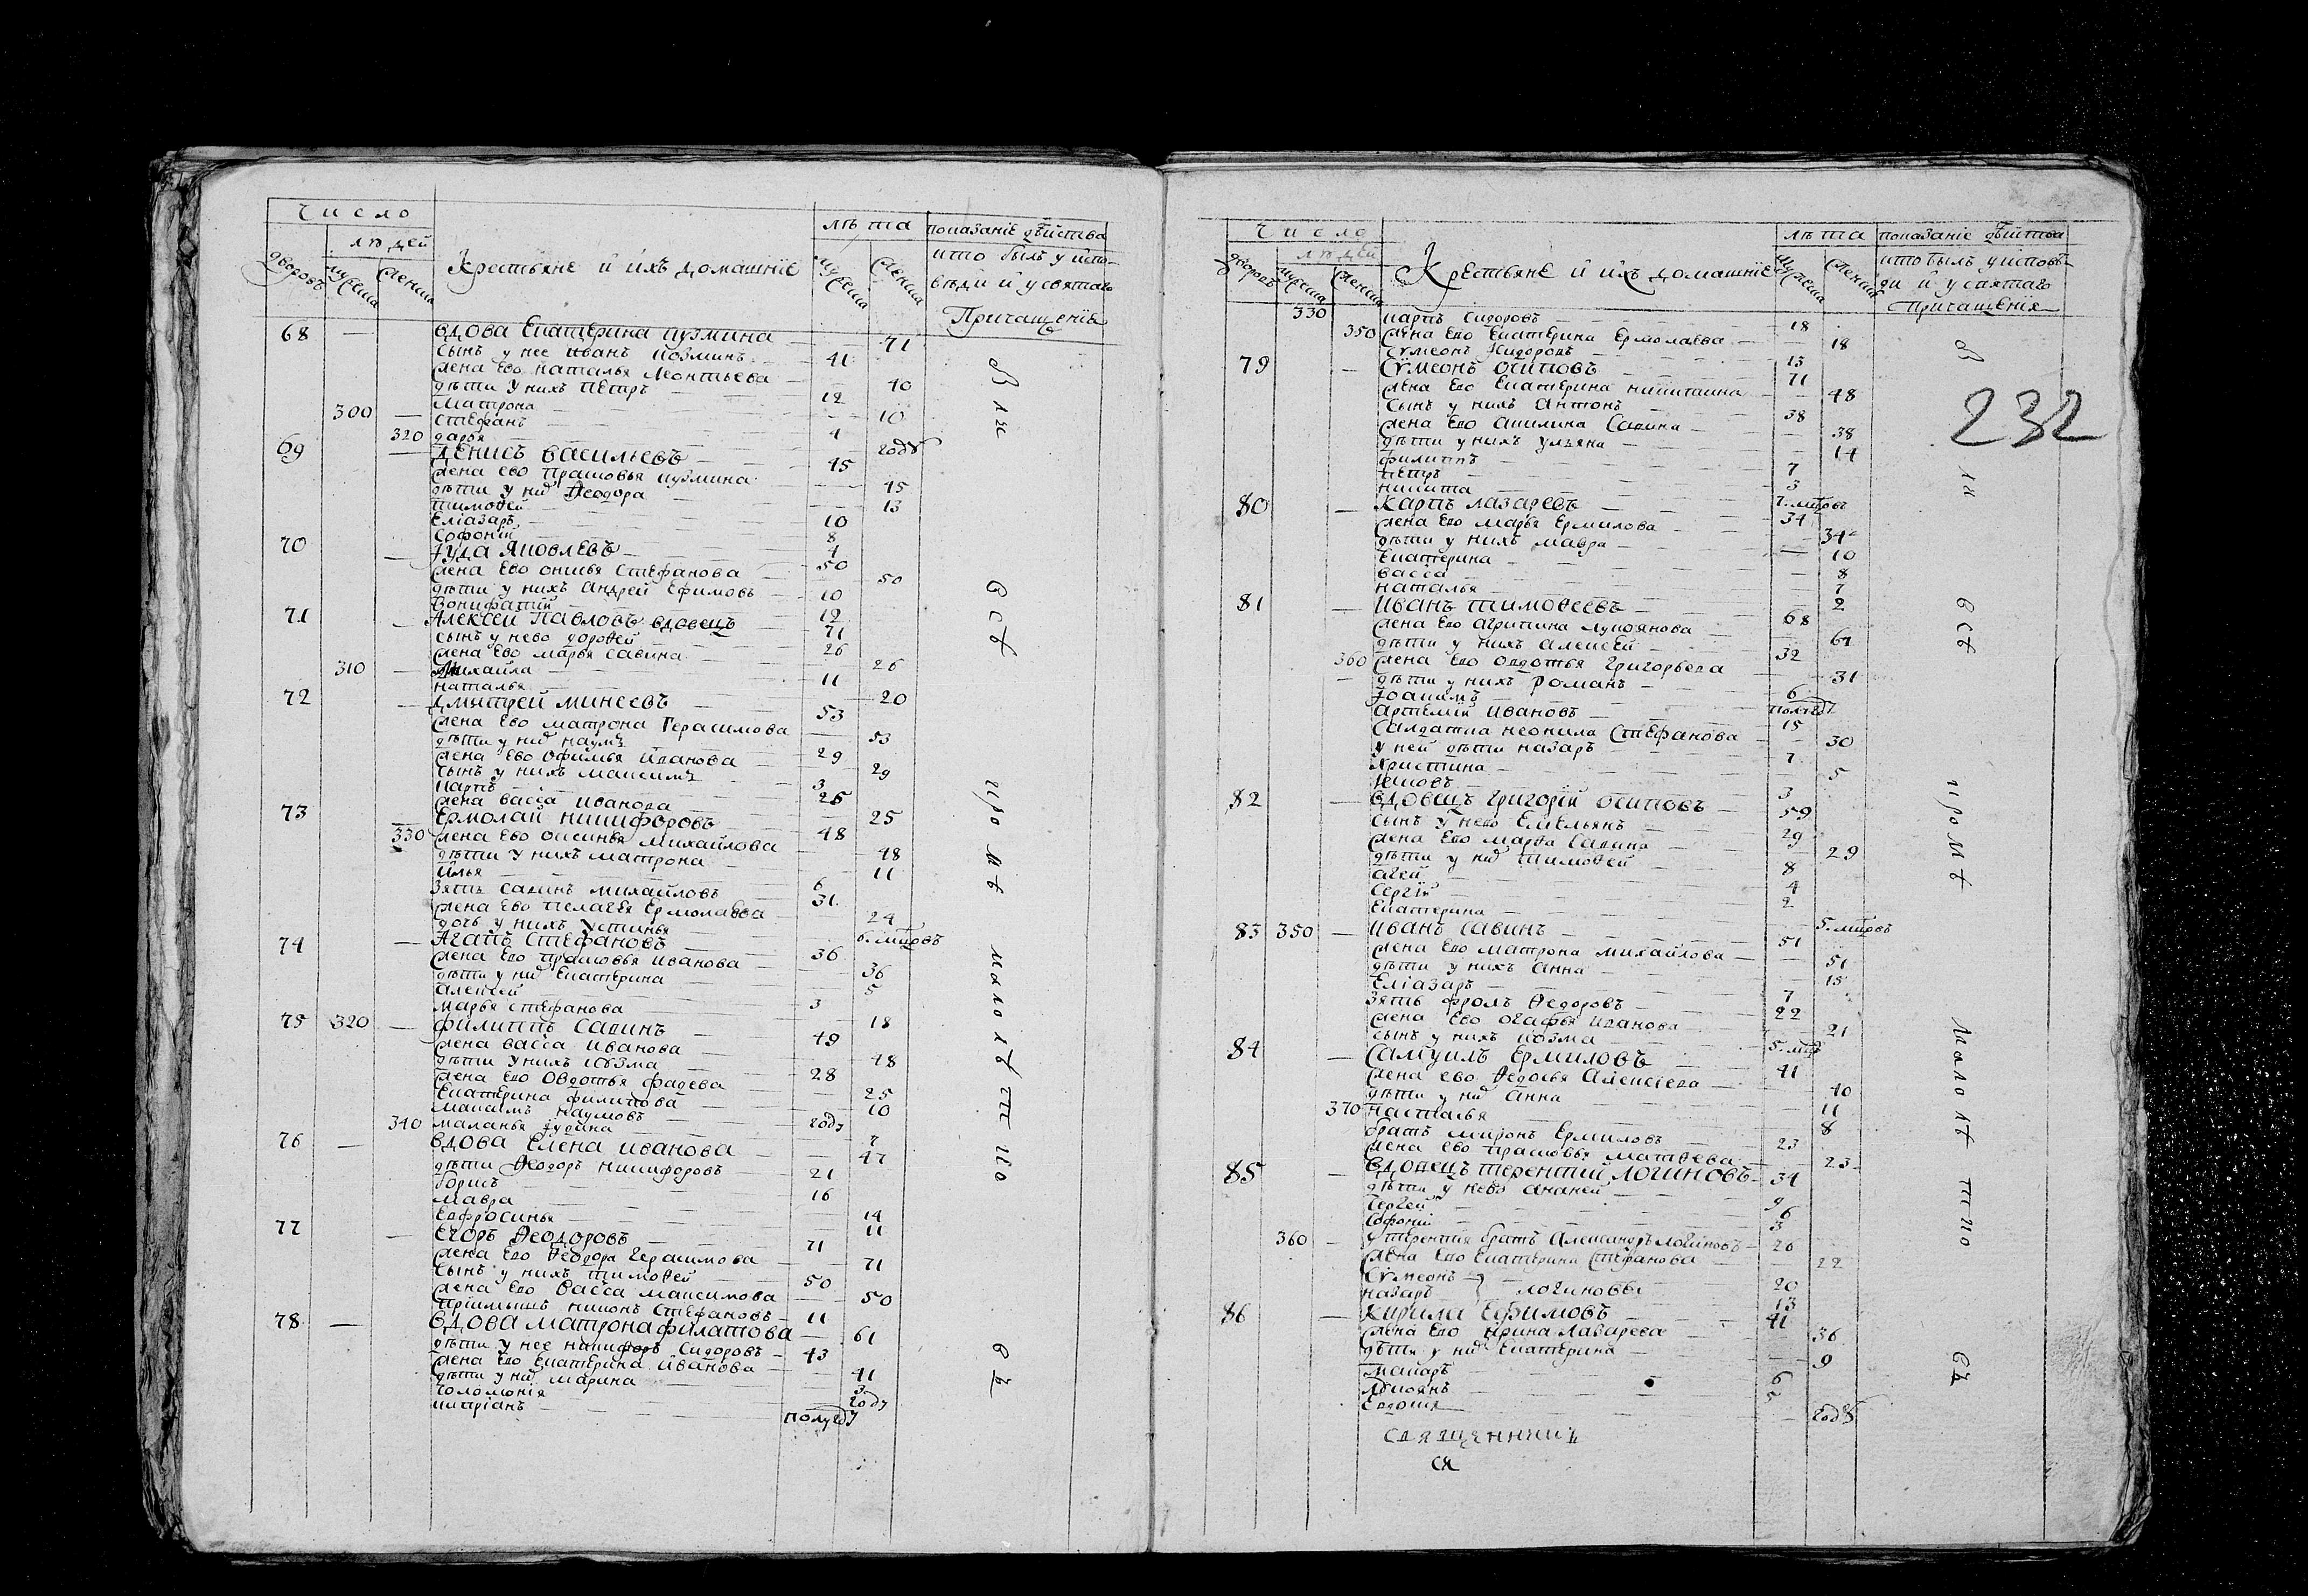 Число
людей
дворовъ
мужеска
женска
Крестьяне и ихъ домашнїе
лѣта
мужеска
женска
показанїе дѣйства
кто былъ у испо-
вѣди и у святаго
Причащенїя
68 — вдова Екатерина кузмина — 71
сынъ у нее иванъ козминъ — 41
жена ево наталья леонтьева — 40
дѣти у нихъ пётръ — 12
матрона — 10
300 — стефанъ — 4
320 дарья — годъ
69 — денисъ васильевъ — 45
жена ево прасковья кузмина — 45
дѣти у них Ѳеодора — 13
тимоѳей — 10
Елїазаръ — 8
Софонїй — 4
70 — Іуда Яковлевъ — 50
жена ево стефанова — 50
дѣти у нихъ андрей Ефимовъ — 10
Вонифатїй — 12
71 — Алексей Павловъ вдовецъ — 71
сынъ у нево дороѳей — 26
жена ево марья савина — 26
310 — михайла — 11
наталья — 20
72 — дмитрей минеевъ — 53
жена ево матрона Герасимова — 53
дѣти у них наумъ — 29
жена ево офимья иванова — 29
сынъ у нихъ максимъ — 3
карпъ — 25
жена васса иванова — 25
73 — Ермолай никифоровъ — 48
330 жена ево оксинья михайлова — 48
дѣти у нихъ матрона — 11
илья — 6
зять савинъ михайловъ — 31
жена ево пелагея Ермолаева — 24
дочь у нихъ устинья — 6. мцовъ
74 — Агапъ Стефановъ — 36
жена ево прасковья иванова — 36
дѣти у них Екатерина — 5
алексей — 3
марья стефанова — 18
75 320 — филиппъ савинъ — 49
жена васса иванова — 48
дѣти у нихъ — 28
жена ево овдотья фадева — 25
Екатерина филипова — 10
максимъ наумовъ — годъ
340 маланья Іудина — 7
76 — вдова Елена иванова — 47
дѣти Ѳеодоръ никифоровъ — 21
борисъ — 16
мавра — 14
Евфросинья — 11
77 — Егоръ Ѳеодоровъ — 71
жена ево Ѳеодора Герасимова — 71
сынъ у нихъ тимоѳей — 50
жена ево васса максимова — 50
прїимышъ никонъ Стефановъ — 11
78 — вдова матрона филатова — 61
дѣти у нее никифоръ Сидоровъ — 43
жена ево Екатерина иванова — 41
дѣти у них марина — 3
Соломонїя — годъ
кипрїанъ — полугоду
всѣ
кромѣ
малолѣтно
въ
Число
людей
дворовъ
мужеска
женска
Крестьяне и ихъ домашнїе
лѣта
мужеска
женска
показанїе дѣйства
кто былъ у исповѣ-
ди и у святаго
Причащенїя
232
330 карпъ Сидоровъ — 18
350 жена ево Екатерина Ермолаева — 18
Сѵмеонъ Сидоровъ — 13
79 — Сѵмеонъ осиповъ — 71
жена ево Екатерина никитина — 48
сынъ у нихъ антонъ — 38
жена ево акилина Савина — 38
дѣти у нихъ ульяна — 14
филиппъ — 7
пётръ — 3
никита — 7. мцовъ
80 — Карпъ лазаревъ — 34
жена ево марья Ермилова — 34
дѣти у нихъ мавра — 10
Екатерина — 8
васса — 7
наталья — 2
81 — иванъ тимоѳеевъ — 68
жена ево агрипина лукоянова — 61
дѣти у нихъ алексей — 32
360 жена ево овдотья григорьева — 31
дѣти у нихъ романъ — 6
Іоакимъ — полугод
артемїй ивановъ — 15
Салдатка неонила Стефанова — 30
у ней дѣти назаръ — 7
христина — 5
яковъ — 3
82 — вдовецъ григорїй осиповъ — 59
сынъ у нево Емельянъ — 29
жена ево марѳа Савина — 29
дѣти у них тимоѳей — 8
агей — 4
Сергїй — 2
Екатерина — 5. мцовъ
83 350 — иванъ савинъ — 51
жена ево матрона михайлова — 51
дѣти у нихъ анна — 15
Елїазаръ — 7
зять фролъ Ѳедоровъ — 22
жена ево огафья иванова — 21
сынъ у нихъ козма — 5. мцъ
84 — Самуилъ Ермиловъ — 41
жена ево Ѳедосья алексїева — 40
дѣти у них анна — 11
370 наталья — 8
братъ миронъ Ермиловъ — 23
жена ево прасковья матѳева — 23
85 — вдовецъ терентїй логиновъ — 34
дѣти у нево ананей — 9
Сергей — 6
Софонїй — 3
360 — у терентїя братъ александръ логиновъ — 26
жена ево Екатерина Стефанова — 22
Сѵмеонъ — 20
назаръ } логиновы — 13
86 — Кирила Ефимовъ — 41
жена ево ирина лазарева — 36
дѣти у них Екатерина — 9
макаръ — 6
лукоянъ — 5
Евдокия — годъ
всѣ
кромѣ
малолѣтно
въ
священникъ